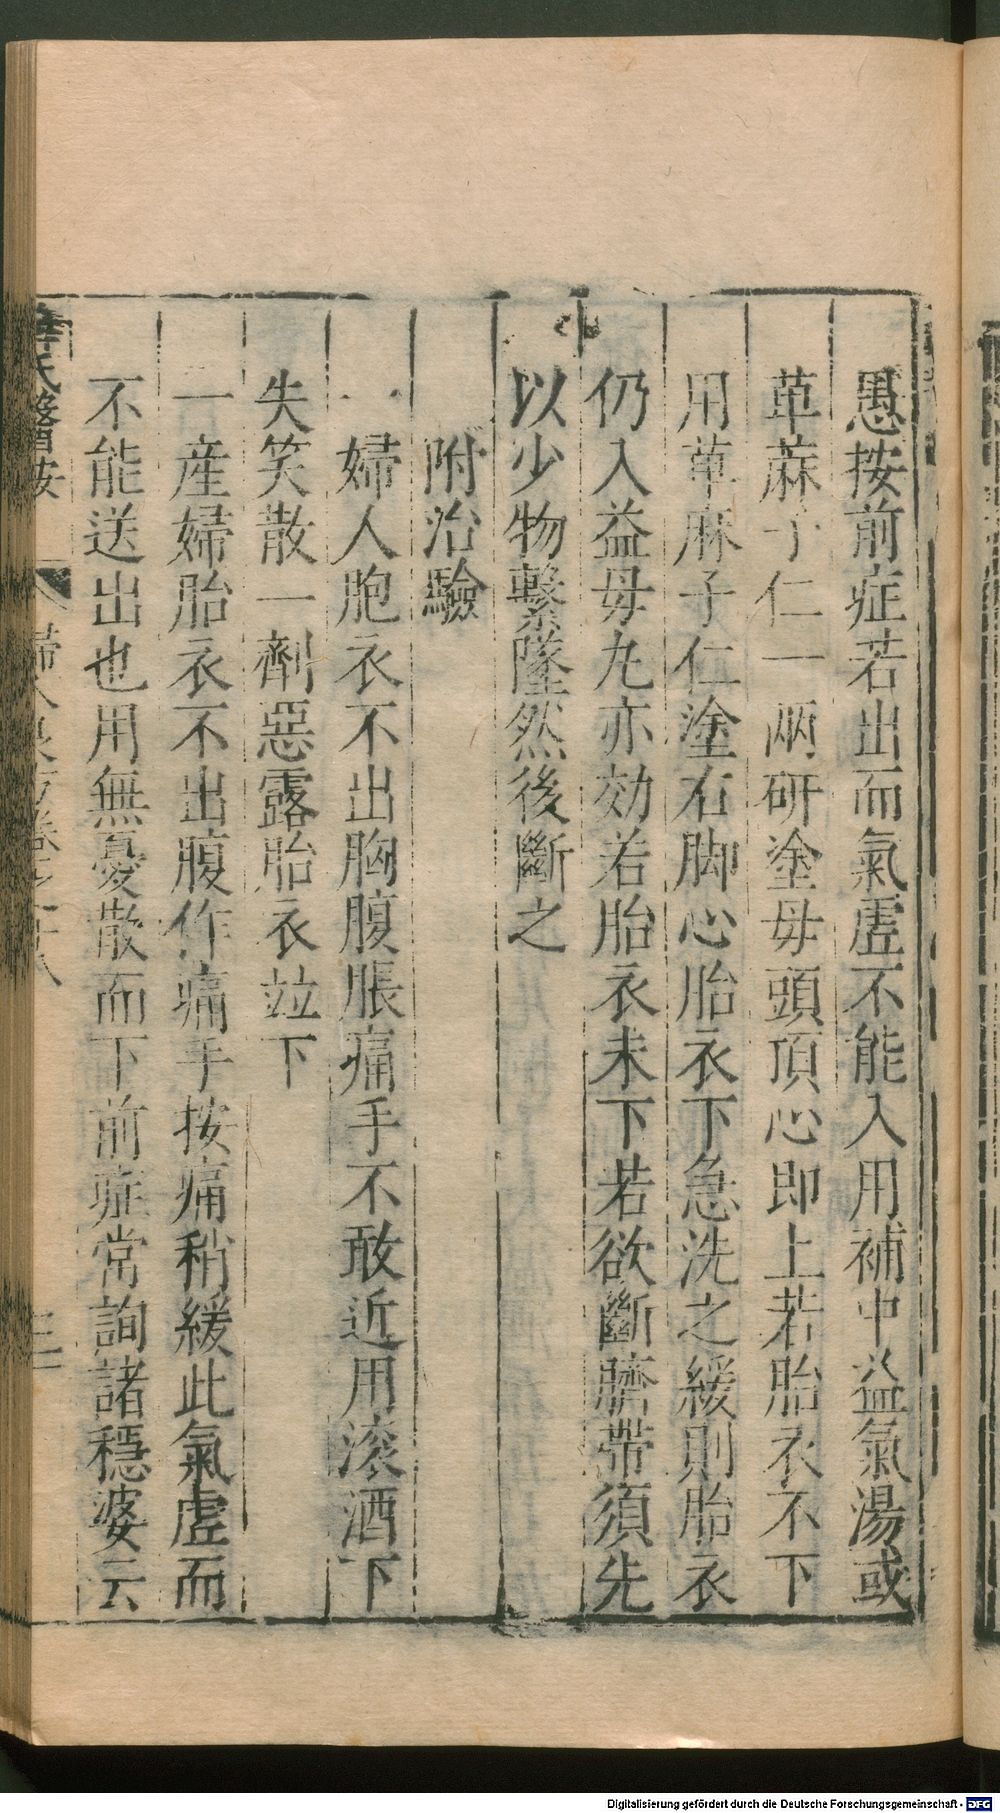 愚按前症若出而氣虛不能入用補中益氣湯或
萆蔴子仁一兩研塗毋頭頂心即上若胎衣不下
用萆麻子仁塗右脚心胎衣下急洗之緩則胎衣
仍入益毋丸亦効若胎衣未下若欲斷臍帶須先
以少物繫墜然後斷之
附治驗
一婦人胞衣不出胸腹脹痛手不敢近用滚酒下
失笑散一劑惡露胎衣竝下
一産婦胎衣不出腹作痛手按痛稍緩此氣虛而
不能送出也用無憂散而下前症常詢諸穩婆云
薛氏醫按
婦人良方卷之十八
Digitalisierung gefördert durch die Deutsche Forschungsgemeinschaft - DFG